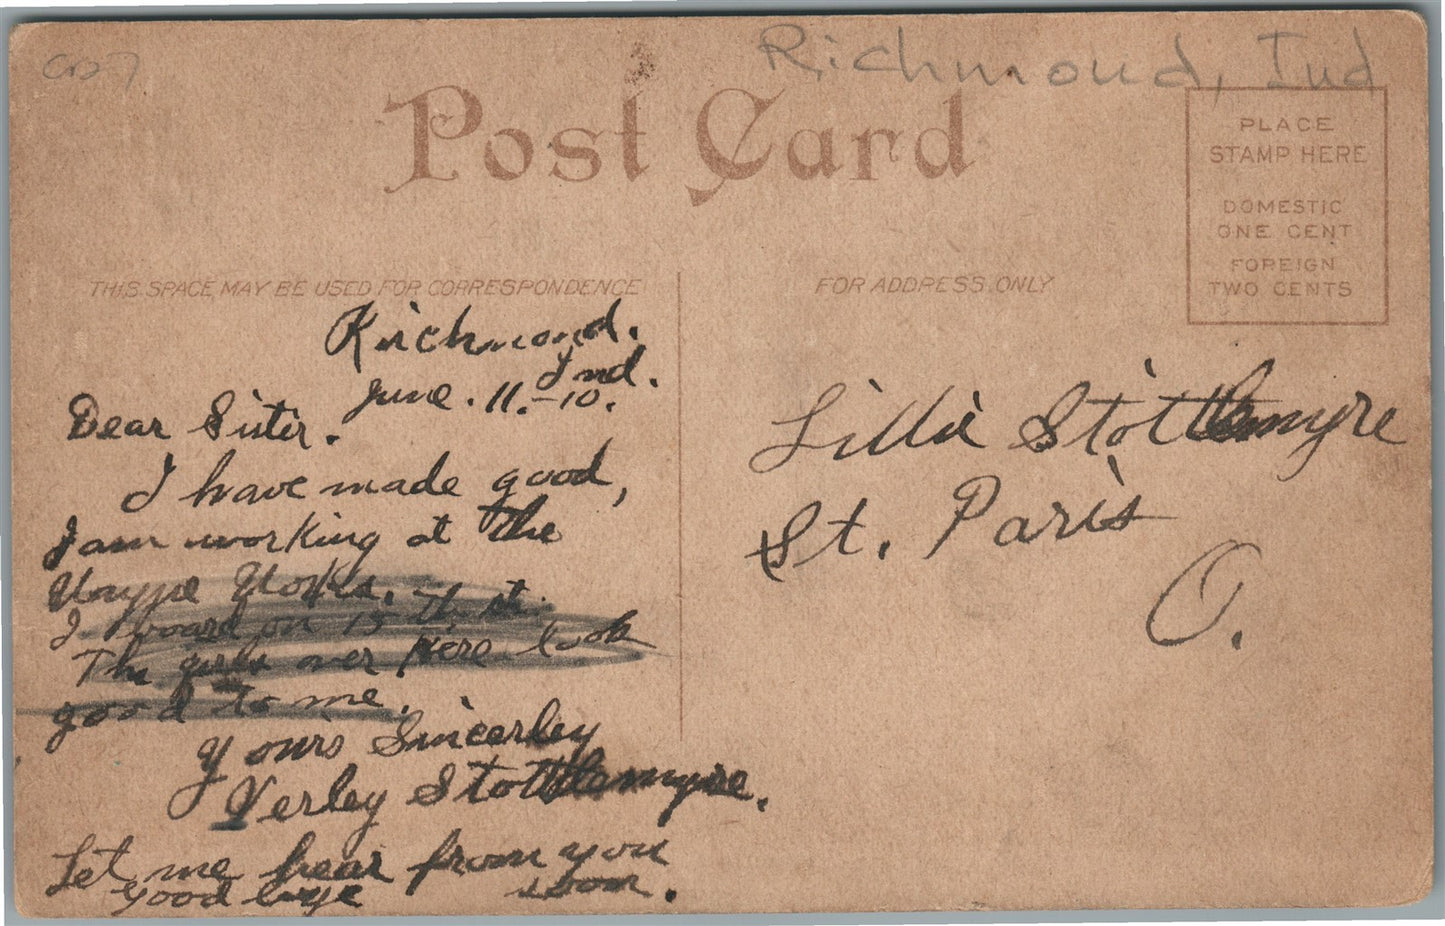 Richmond, Ind
Post Card
PLACE
STAMP HERE
DOMESTIC
ONE CENT
FOREIGN
TWO CENTS
THIS SPACE MAY BE USED FOR CORRESPONDENCE
FOR ADDRESS ONLY
Richmond.
Ind.
June. 11.-10.
Dear Sister.
I have made good,
I am working at the
Wayne Works.
I board on 15 th st.
The girls over here look
good to me.
Yours Sincerley
Verley Stottlemyre.
Let me hear from you
soon.
good bye
Lillie Stottlemyre
St. Paris
O.